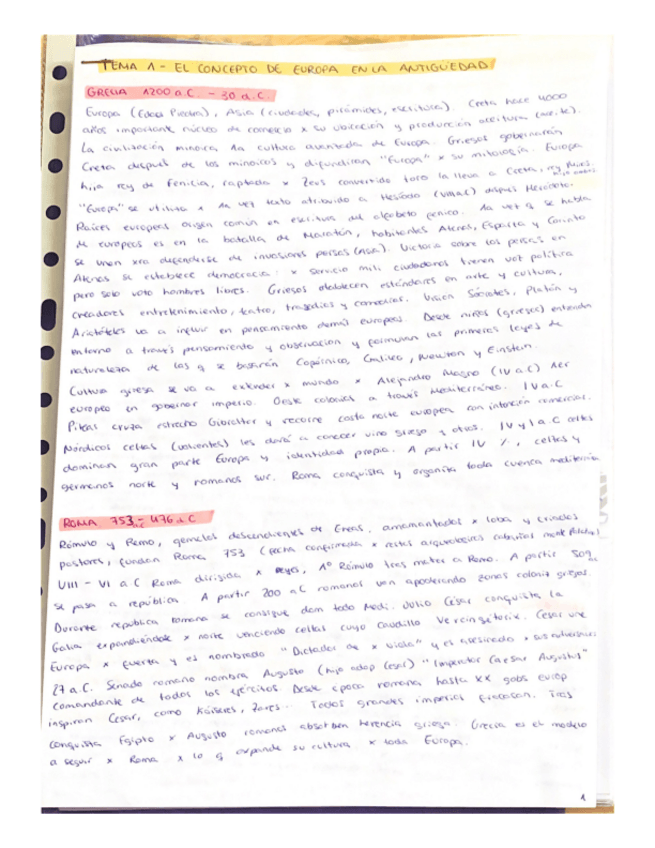 TEMA 1 - EL CONCEPTO DE EUROPA EN LA ANTIGÜEDAD
GRECIA 1200 a.C. - 30 a.C.
Europa (Edad Piedra), Asia (ciudades, pirámides, escritura). Creta hace 4000
años importante núcleo de comercio x su ubicación y producción aceituna (aceite).
La civilización minoica, 1a cultura avanzada de Europa. Griegos gobernarán
Creta después de los minoicos y difundirán "Europa" x su mitología. Europa
hija rey de Fenicia, raptada x Zeus convertido toro la lleva a Creta, rey Minos.
"Europa" se utiliza x 1a vez texto atribuido a Hesíodo (VIII a.C) después Heródoto.
Raíces europeas origen común en escritura del alfabeto fenicio. 1a vez q se habla
de europeos es en la batalla de Maratón, habitantes Atenas, Esparta y Corinto
se unen xra defenderse de invasiones persas (Asia). Victoria sobre los persas en
Atenas se establece democracia: x servicio mili ciudadanos tienen voz política
pero solo voto hombres libres. Griegos establecen estándares en arte y cultura,
creadores entretenimiento, teatro, tragedias y comedias. Sócrates, Platón y
Aristóteles va a influir en pensamiento demás europeos. Desde niños (griegos) entienden
entorno a través pensamiento y observación y formulan las primeras leyes de
naturaleza de las q se basarán Copérnico, Galileo, Newton y Einstein.
Cultura griega se va a extender x mundo x Alejandro Magno (IV a.C) 1er
europeo en gobernar imperio. Desde colonias a través Mediterráneo. IV a.C
Piteas cruza estrecho Gibraltar y recorre costa norte europea con intención comercial.
Nórdicos celtas (valientes) les dará a conocer vino griego y otros. IV y I a.C celtas
dominan gran parte Europa y identidad propia. A partir IV celtas y
germanos norte y romanos sur. Roma conquista y organiza toda cuenca mediterránea
ROMA 753 a.C - 476 d.C
Rómulo y Remo, gemelos descendientes de Eneas, amamantados x loba y criados
pastores, fundan Roma 753 (fecha confirmada x restos arqueológicos cabañas mont Palatino)
VIII - VI a.C Roma dirigida x reyes, 1º Rómulo tras matar a Remo. A partir 509 a.C
se pasa a república. A partir 200 a.C romanos van apoderando zonas coloniz griegas.
Durante república romana se consigue dom todo Medi. Julio César conquista la
Galia expandiéndose x norte venciendo celtas cuyo caudillo Vercingétorix. César une
Europa x fuerza y es nombrado "Dictador de x vida" y es asesinado x sus
27 a.C. Senado romano nombra Augusto (hijo adop César) "Imperator Caesar Augustus"
comandante de todos los ejércitos. Desde época romana hasta XX gobs europ
inspiran César, como Káiseres, Zares. Todos grandes imperios fracasan. Tras
conquista Egipto x Augusto romanos absorben herencia griega. Grecia es el modelo
a seguir x Roma x lo q expande su cultura x toda Europa.
1